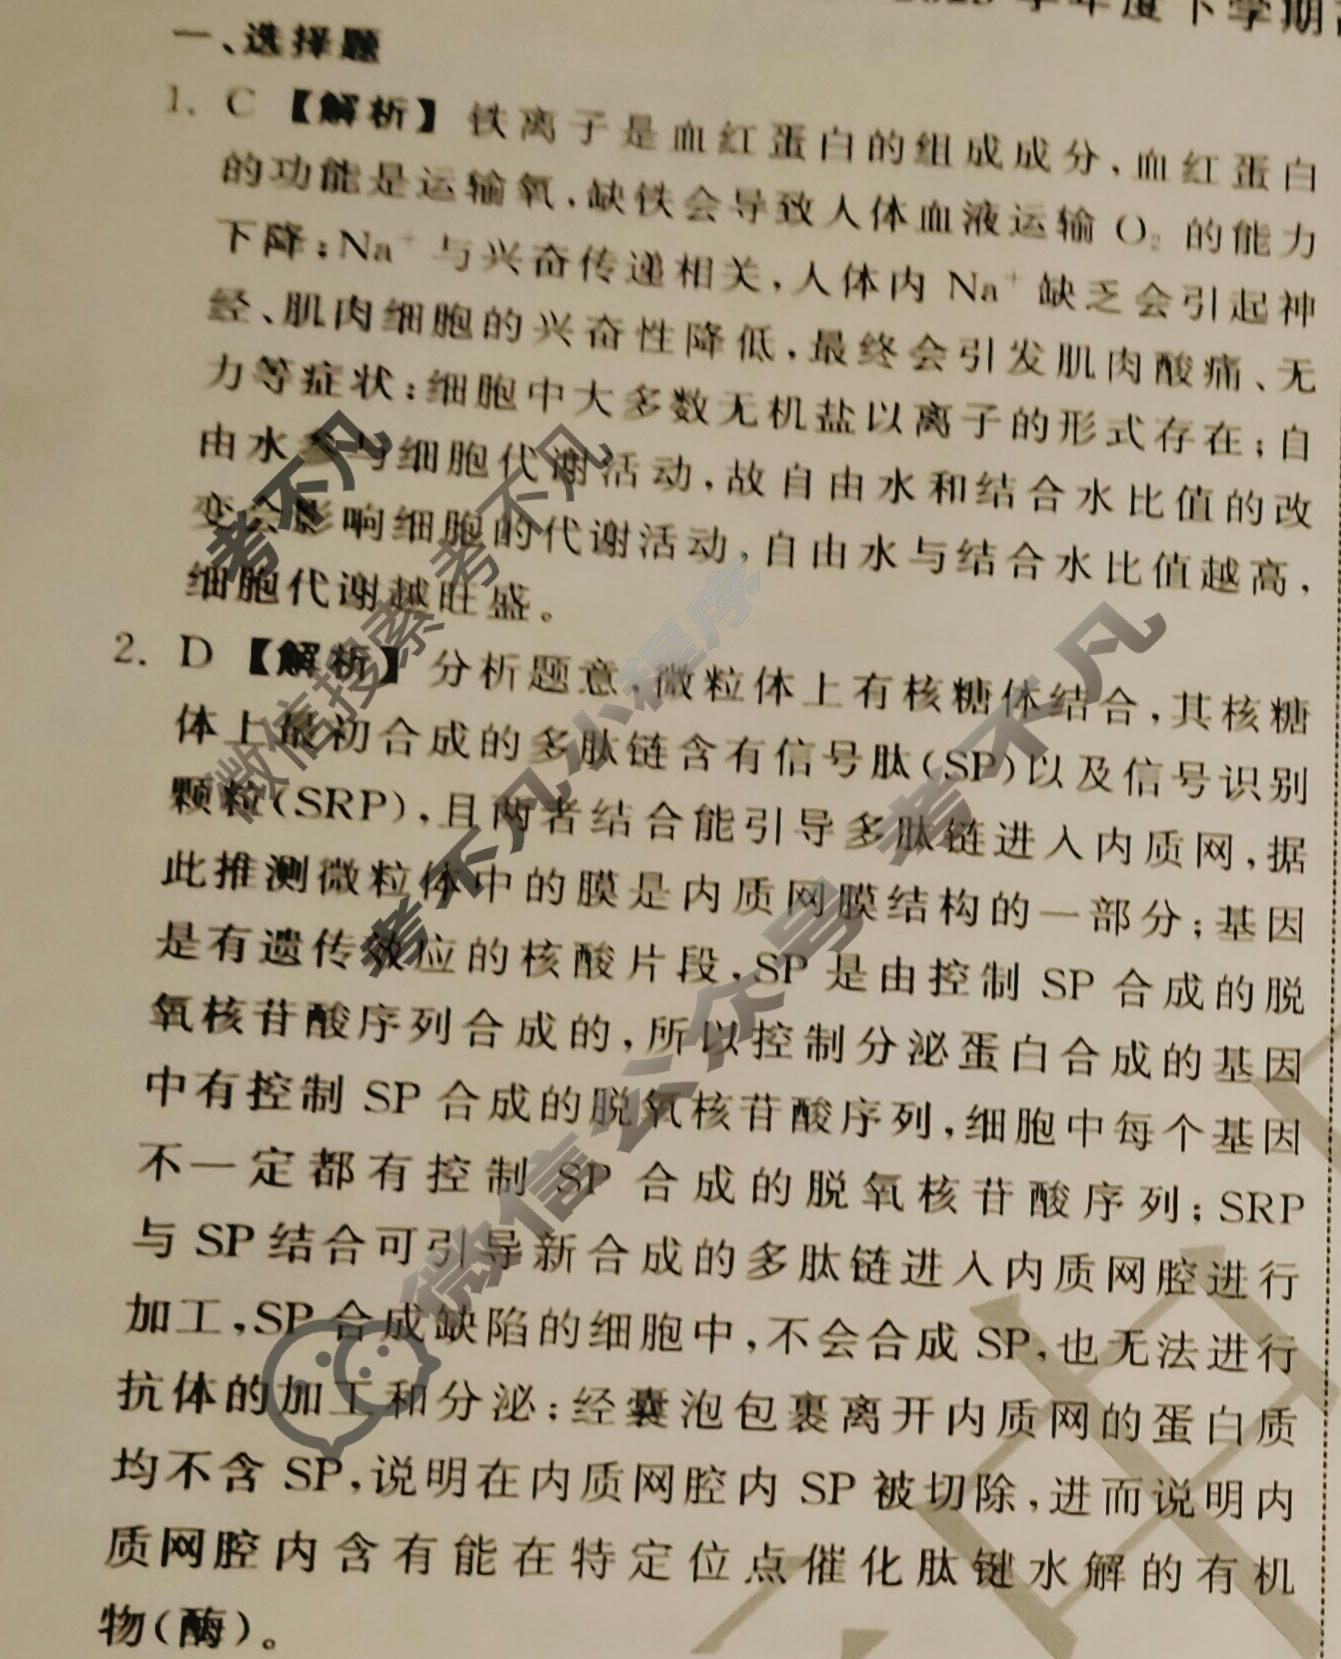 学年度下学期
一、选择题
1. C 【解析】铁离子是血红蛋白的组成成分,血红蛋白
的功能是运输氧,缺铁会导致人体血液运输 O₂ 的能力
下降;Na⁺ 与兴奋传递相关,人体内 Na⁺ 缺乏会引起神
经、肌肉细胞的兴奋性降低,最终会引发肌肉酸痛、无
力等症状;细胞中大多数无机盐以离子的形式存在;自
由水参与细胞代谢活动,故自由水和结合水比值的改
变会影响细胞的代谢活动,自由水与结合水比值越高,
细胞代谢越旺盛。
2. D 【解析】分析题意,微粒体上有核糖体结合,其核糖
体上最初合成的多肽链含有信号肽(SP)以及信号识别
颗粒(SRP),且两者结合能引导多肽链进入内质网,据
此推测微粒体中的膜是内质网膜结构的一部分;基因
是有遗传效应的核酸片段,SP 是由控制 SP 合成的脱
氧核苷酸序列合成的,所以控制分泌蛋白合成的基因
中有控制 SP 合成的脱氧核苷酸序列,细胞中每个基因
不一定都有控制 SP 合成的脱氧核苷酸序列;SRP
与 SP 结合可引导新合成的多肽链进入内质网腔进行
加工,SP 合成缺陷的细胞中,不会合成 SP,也无法进行
抗体的加工和分泌;经囊泡包裹离开内质网的蛋白质
均不含 SP,说明在内质网腔内 SP 被切除,进而说明内
质网腔内含有能在特定位点催化肽键水解的有机
物(酶)。
考不凡
微信搜索 考不凡
考不凡小程序
微信公众号 考不凡